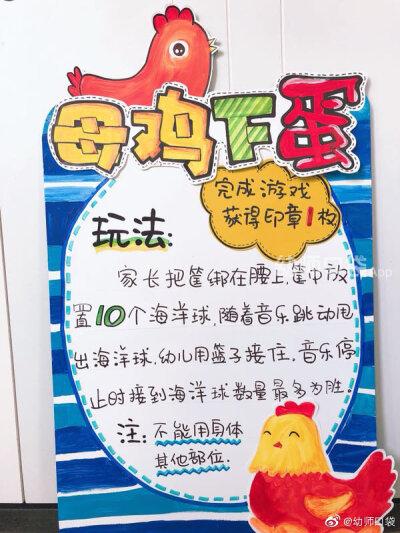 母鸡下蛋
完成游戏
获得印章1枚
玩法:
家长把筐绑在腰上,筐中放
置10个海洋球,随着音乐跳动甩
出海洋球,幼儿用篮子接住,音乐停
止时接到海洋球数量最多为胜.
注:不能用身体
其他部位.
幼师口袋App
@幼师口袋